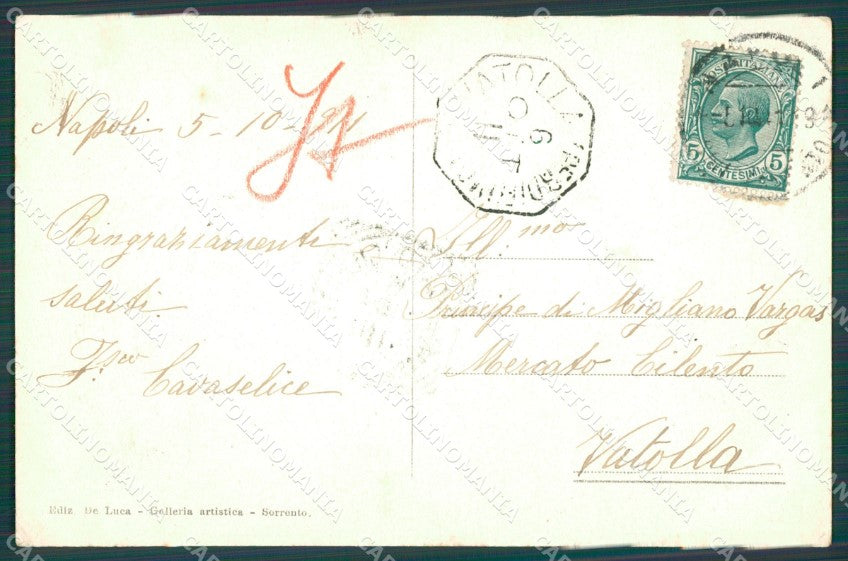 Napoli 5-10-911
Ringraziamenti
saluti.
F.sco Cavaselice
Ediz. De Luca - Galleria artistica - Sorrento.
VATOLLA
6 OTT 11
POSTE ITALIANE
5 CENTESIMI 5
Ill.mo
Principe di Migliano Vargas
Mercato Cilento
Vatolla
CARTOLINOMANIA